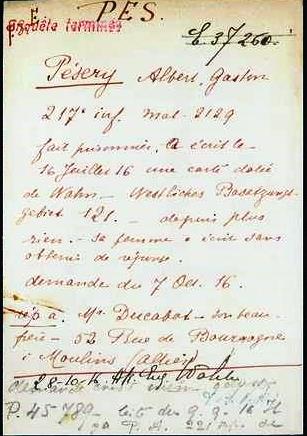 P.E.
PES.
Enquête terminée
E. 37260.
Pésery Albert, Gaston
217e inf. mat. 2129
fait prisonnier, a écrit le
16 Juillet 16 une carte datée
de Wahn - Westliches Besetzungs-
gebiet 121. - depuis plus
rien. - sa femme a écrit sans
obtenir de réponse.
demande du 7 Oct. 16.
rép. à Mr. Ducabot - son beau
frère - 52 Rue de Bourgogne
à Moulins (Allier)
28-10-16
P. 45789